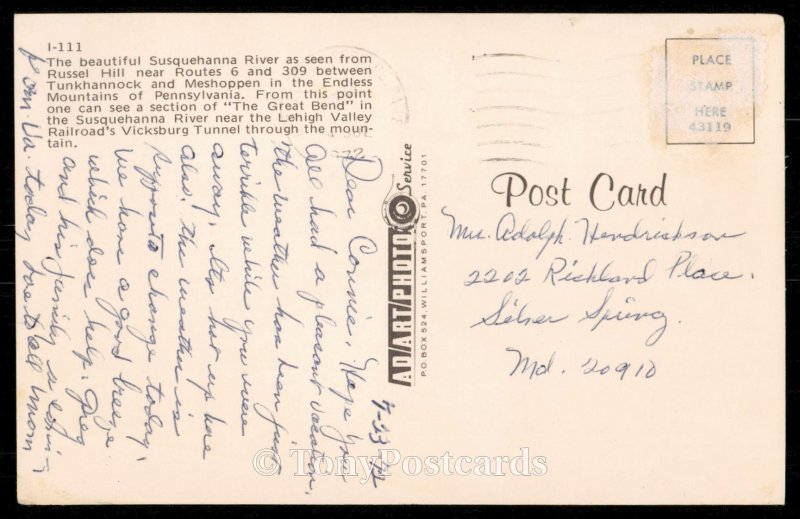 I-111
The beautiful Susquehanna River as seen from
Russel Hill near Routes 6 and 309 between
Tunkhannock and Meshoppen in the Endless
Mountains of Pennsylvania. From this point
one can see a section of "The Great Bend" in
the Susquehanna River near the Lehigh Valley
Railroad's Vicksburg Tunnel through the moun-
tain.
7-23-72
Dear Connie, Hope you
all had a pleasant vacation,
the weather has been just
terrible while you were
away. Its hot up here
also. The weather is
suppost to change today,
we have a good breeze
which does help. Greg
and his family is comin-
from Va. today. Love to all Mom
AD/ART/PHOTO Service
P.O. BOX 524, WILLIAMSPORT, PA. 17701
PLACE
STAMP
HERE
43119
Post Card
Mrs. Adolph Hendrickson
2202 Richland Place.
Silver Spring.
Md. 20910
© TonyPostcards